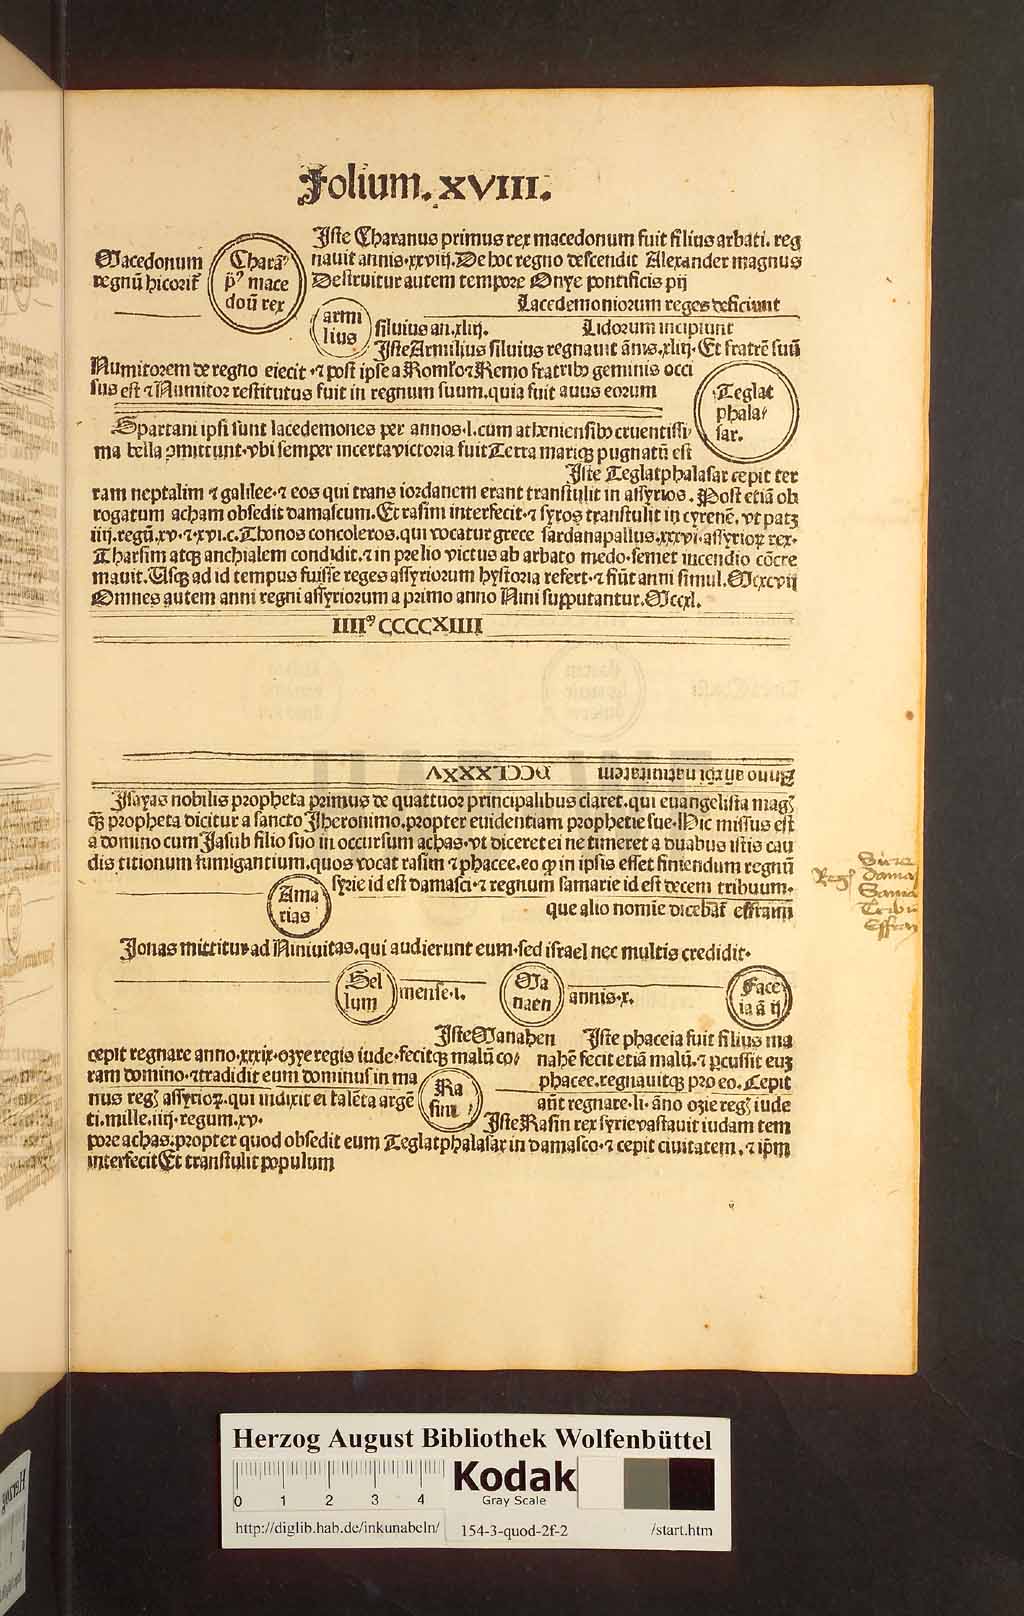 Folium. XVIII.
Macedonum
regnū hic orit᷑
Charaꝰ
pꝰ mace
donū rex
Iste Charanus primus rex macedonum fuit filius arbati. reg
nauit annis. xxviij. De hoc regno descendit Alexander magnus
Destruitur autem tempore Onye pontificis pij
Lacedemoniorum reges deficiunt
armi
lius
siluius an. xliij.
Lidorum incipiunt
Iste Armilius siluius regnauit ānis. xliij. Et fratrē suū
Numitorem de regno eiecit. ⁊ post ipse a Romlo ⁊ Remo fratribꝫ geminis occi
sus est ⁊ Numitor restitutus fuit in regnum suum. quia fuit auus eorum
Teglat
phala
sar.
Spartani ipsi sunt lacedemones per annos. l. cum atheniensibꝫ cruentissi
ma bella ꝯmittunt. vbi semper incerta victoria fuit Terra mariqꝫ pugnatū est
Iste Teglatphalasar cepit ter
ram neptalim ⁊ galilee. ⁊ eos qui trans iordanem erant transtulit in assyrios. Post etiā ob
rogatum acham obsedit damascum. Et rasim interfecit. ⁊ syros transtulit in cyrenē. vt patꝫ
iiij. regū. xv. ⁊ xvi. c. Thonos concoleros. qui vocatur grece sardanapallus. xxxvi. assyrioꝝ rex.
Tharsim atqꝫ anchialem condidit. ⁊ in prelio victus ab arbato medo. semet incendio cōcre
mauit. Usqꝫ ad id tempus fuisse reges assyriorum hystoria refert. ⁊ fiūt anni simul. Mcxcvij
Omnes autem anni regni assyriorum a primo anno Nini supputantur. Mccxl.
IIIIꝰ CCCCXIIII
Anno an̄ xp̄i natiuitatem DCCLXXXV
Isayas nobilis propheta primus de quattuor principalibus claret. qui euangelista magꝭ
qꝫ propheta dicitur a sancto Iheronimo. propter euidentiam prophetie sue. Hic missus est
a domino cum Jasub filio suo in occursum achas. vt diceret ei ne timeret a duabus istis cau
dis titionum fumigantium. quos vocat rasim ⁊ phacee. eo ꝙ in ipsis esset finiendum regnū
syrie id est damasci. ⁊ regnum samarie id est decem tribuum.
Ama
rias
que alio nomīe dicebat᷑ effraim
Regꝭ
Sirie
dama
Sama
Tribū
Effraī
Jonas mittitur ad Niniuitas. qui audierunt eum. sed israel nec multis credidit.
Sel
lum
mense. i.
Ma
naen
annis. x.
Face
ia ā ij
Iste Manahen
cepit regnare anno. xxxix. ozye regis iude. fecitqꝫ malū co
ram domino. ⁊ tradidit eum dominus in ma
nus regꝭ assyrioꝝ. qui indixit ei talēta argē
ti. mille. iiij. regum. xv.
Iste phaceia fuit filius ma
nahē fecit etiā malū. ⁊ ꝑcussit euꝫ
phacee. regnauitqꝫ pro eo. Cepit
aūt regnare. li. āno ozie regꝭ iude
Ra
sim
Iste Rasin rex syrie vastauit iudam tem
pore achas. propter quod obsedit eum Teglatphalasar in damasco. ⁊ cepit ciuitatem. ⁊ ip̄m
interfecit Et transtulit populum
Herzog August Bibliothek Wolfenbüttel
0 1 2 3 4
Kodak
Gray Scale
http://diglib.hab.de/inkunabeln/ 154-3-quod-2f-2 /start.htm